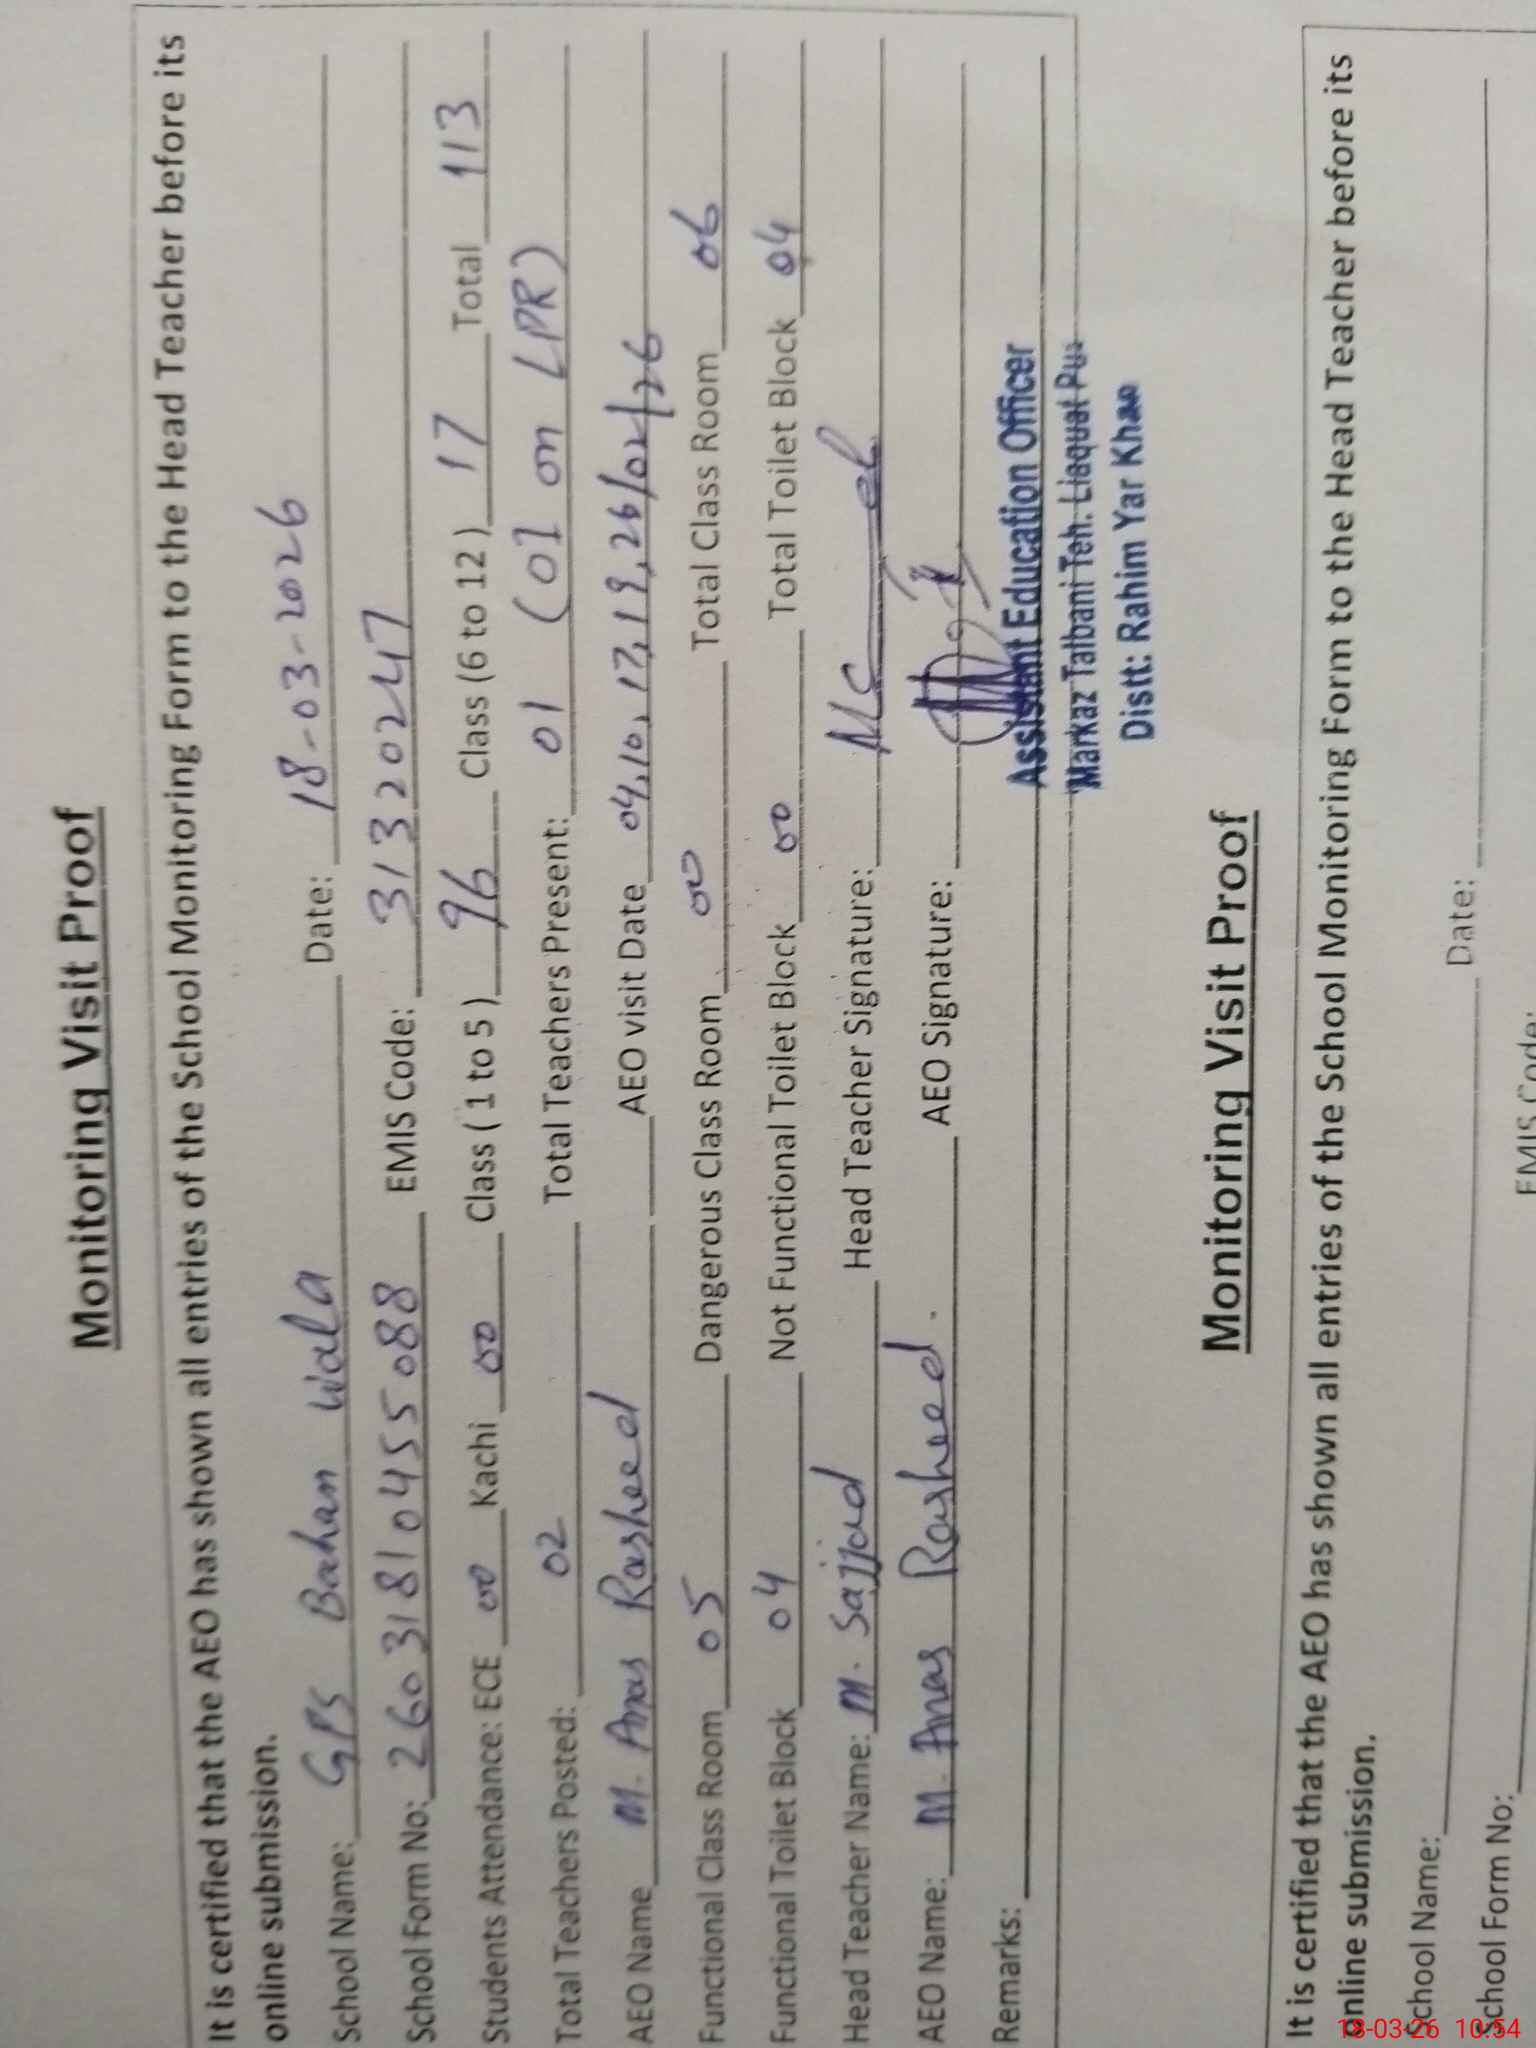 Monitoring Visit Proof
It is certified that the AEO has shown all entries of the School Monitoring Form to the Head Teacher before its
online submission.
School Name: GPS Baham Wala Date: 18-03-2026
School Form No: 2603181 0455088 EMIS Code: 31320247
Students Attendance: ECE 00 Kachi 00 Class ( 1 to 5 ) 96 Class (6 to 12 ) 17 Total 113
Total Teachers Posted: 02 Total Teachers Present: 01 (01 on LPR)
AEO Name M. Anas Rasheed AEO visit Date 04,10,17,19,26/02/26
Functional Class Room 05 Dangerous Class Room 00 Total Class Room 06
Functional Toilet Block 04 Not Functional Toilet Block 00 Total Toilet Block 04
Head Teacher Name: M. Sajjad Head Teacher Signature:
AEO Name: M. Anas Rasheed. AEO Signature:
Remarks:
Assistant Education Officer
Markaz Talbani Teh: Liaquat Pur
Distt: Rahim Yar Khan
Monitoring Visit Proof
It is certified that the AEO has shown all entries of the School Monitoring Form to the Head Teacher before its
online submission.
School Name: Date:
School Form No: EMIS Code:
18-03-26 10:54